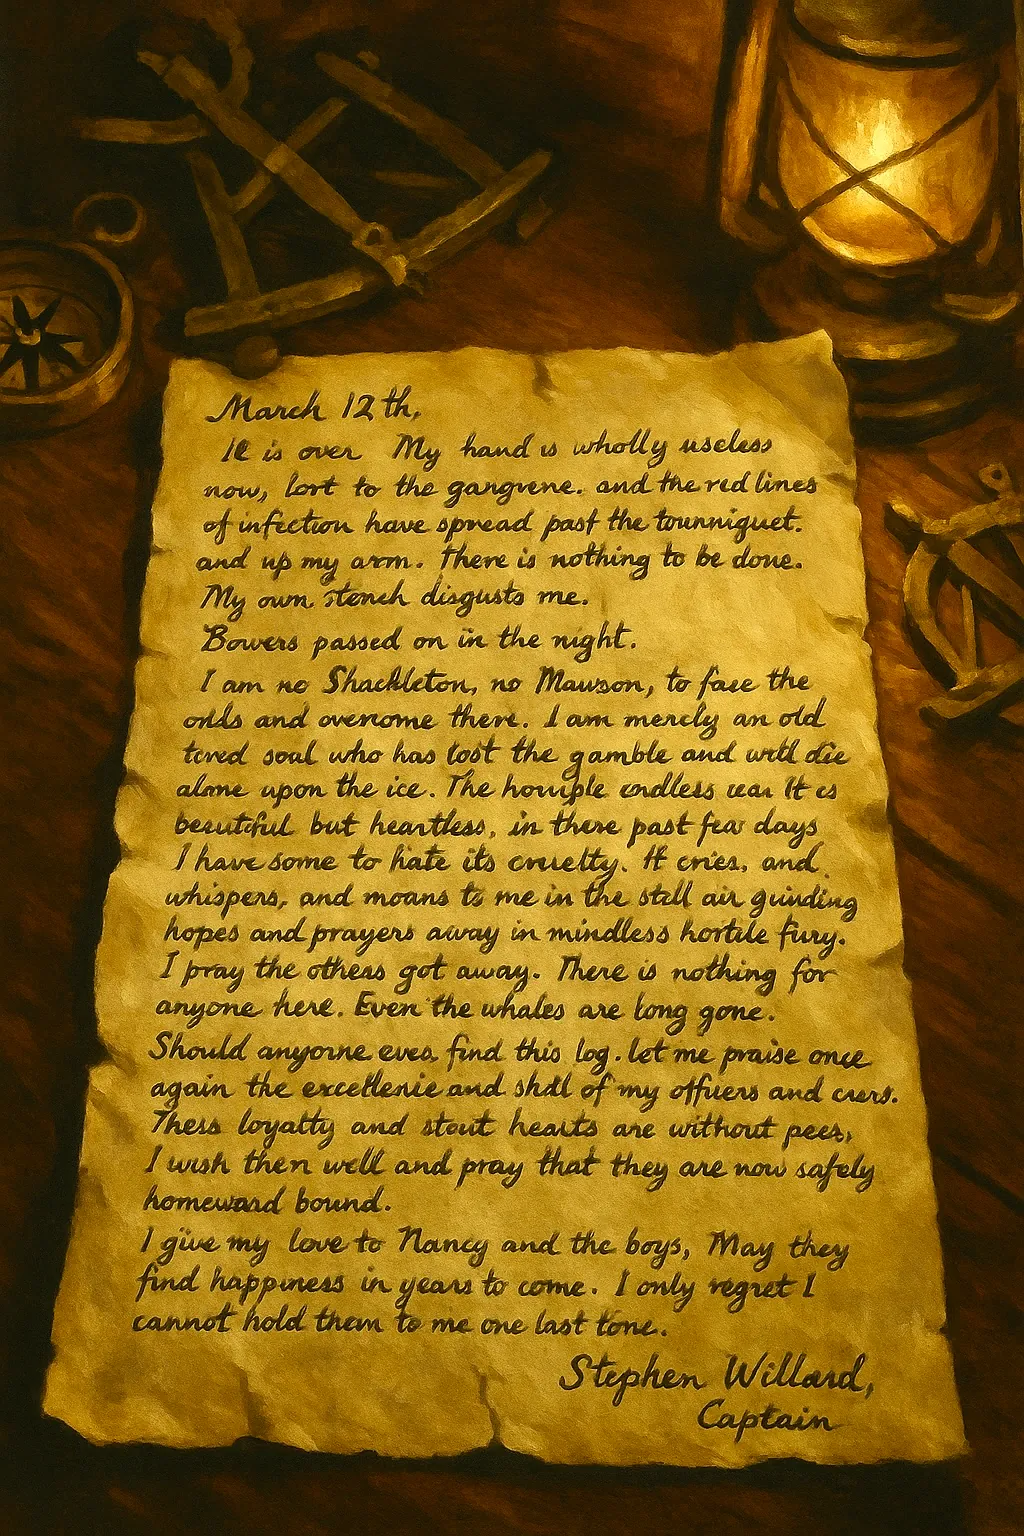 March 12th,
It is over My hand is wholly useless
now, lost to the gangrene. and the red lines
of infection have spread past the tourniquet.
and up my arm. There is nothing to be done.
My own stench disgusts me.
Bowers passed on in the night.
I am no Shackleton, no Mawson, to face the
odds and overcome there. I am merely an old
tired soul who has lost the gamble and will die
alone upon the ice. The horrible endless It is
beautiful but heartless, in there past few days
I have some to hate its cruelty. It cries, and
whispers, and moans to me in the still air grinding
hopes and prayers away in mindless hostile fury.
I pray the others got away. There is nothing for
anyone here. Even the whales are long gone.
Should anyorne ever find this log. let me praise once
again the excellenie and of my officers and
loyalty and stout hearts are without peer,
I wish then well and pray that they are now safely
homeward bound.
I give my love to Nancy and the boys, May they
find happiness in years to come. I only regret I
cannot hold them to me one last tone.
Stephen Willard,
Captain